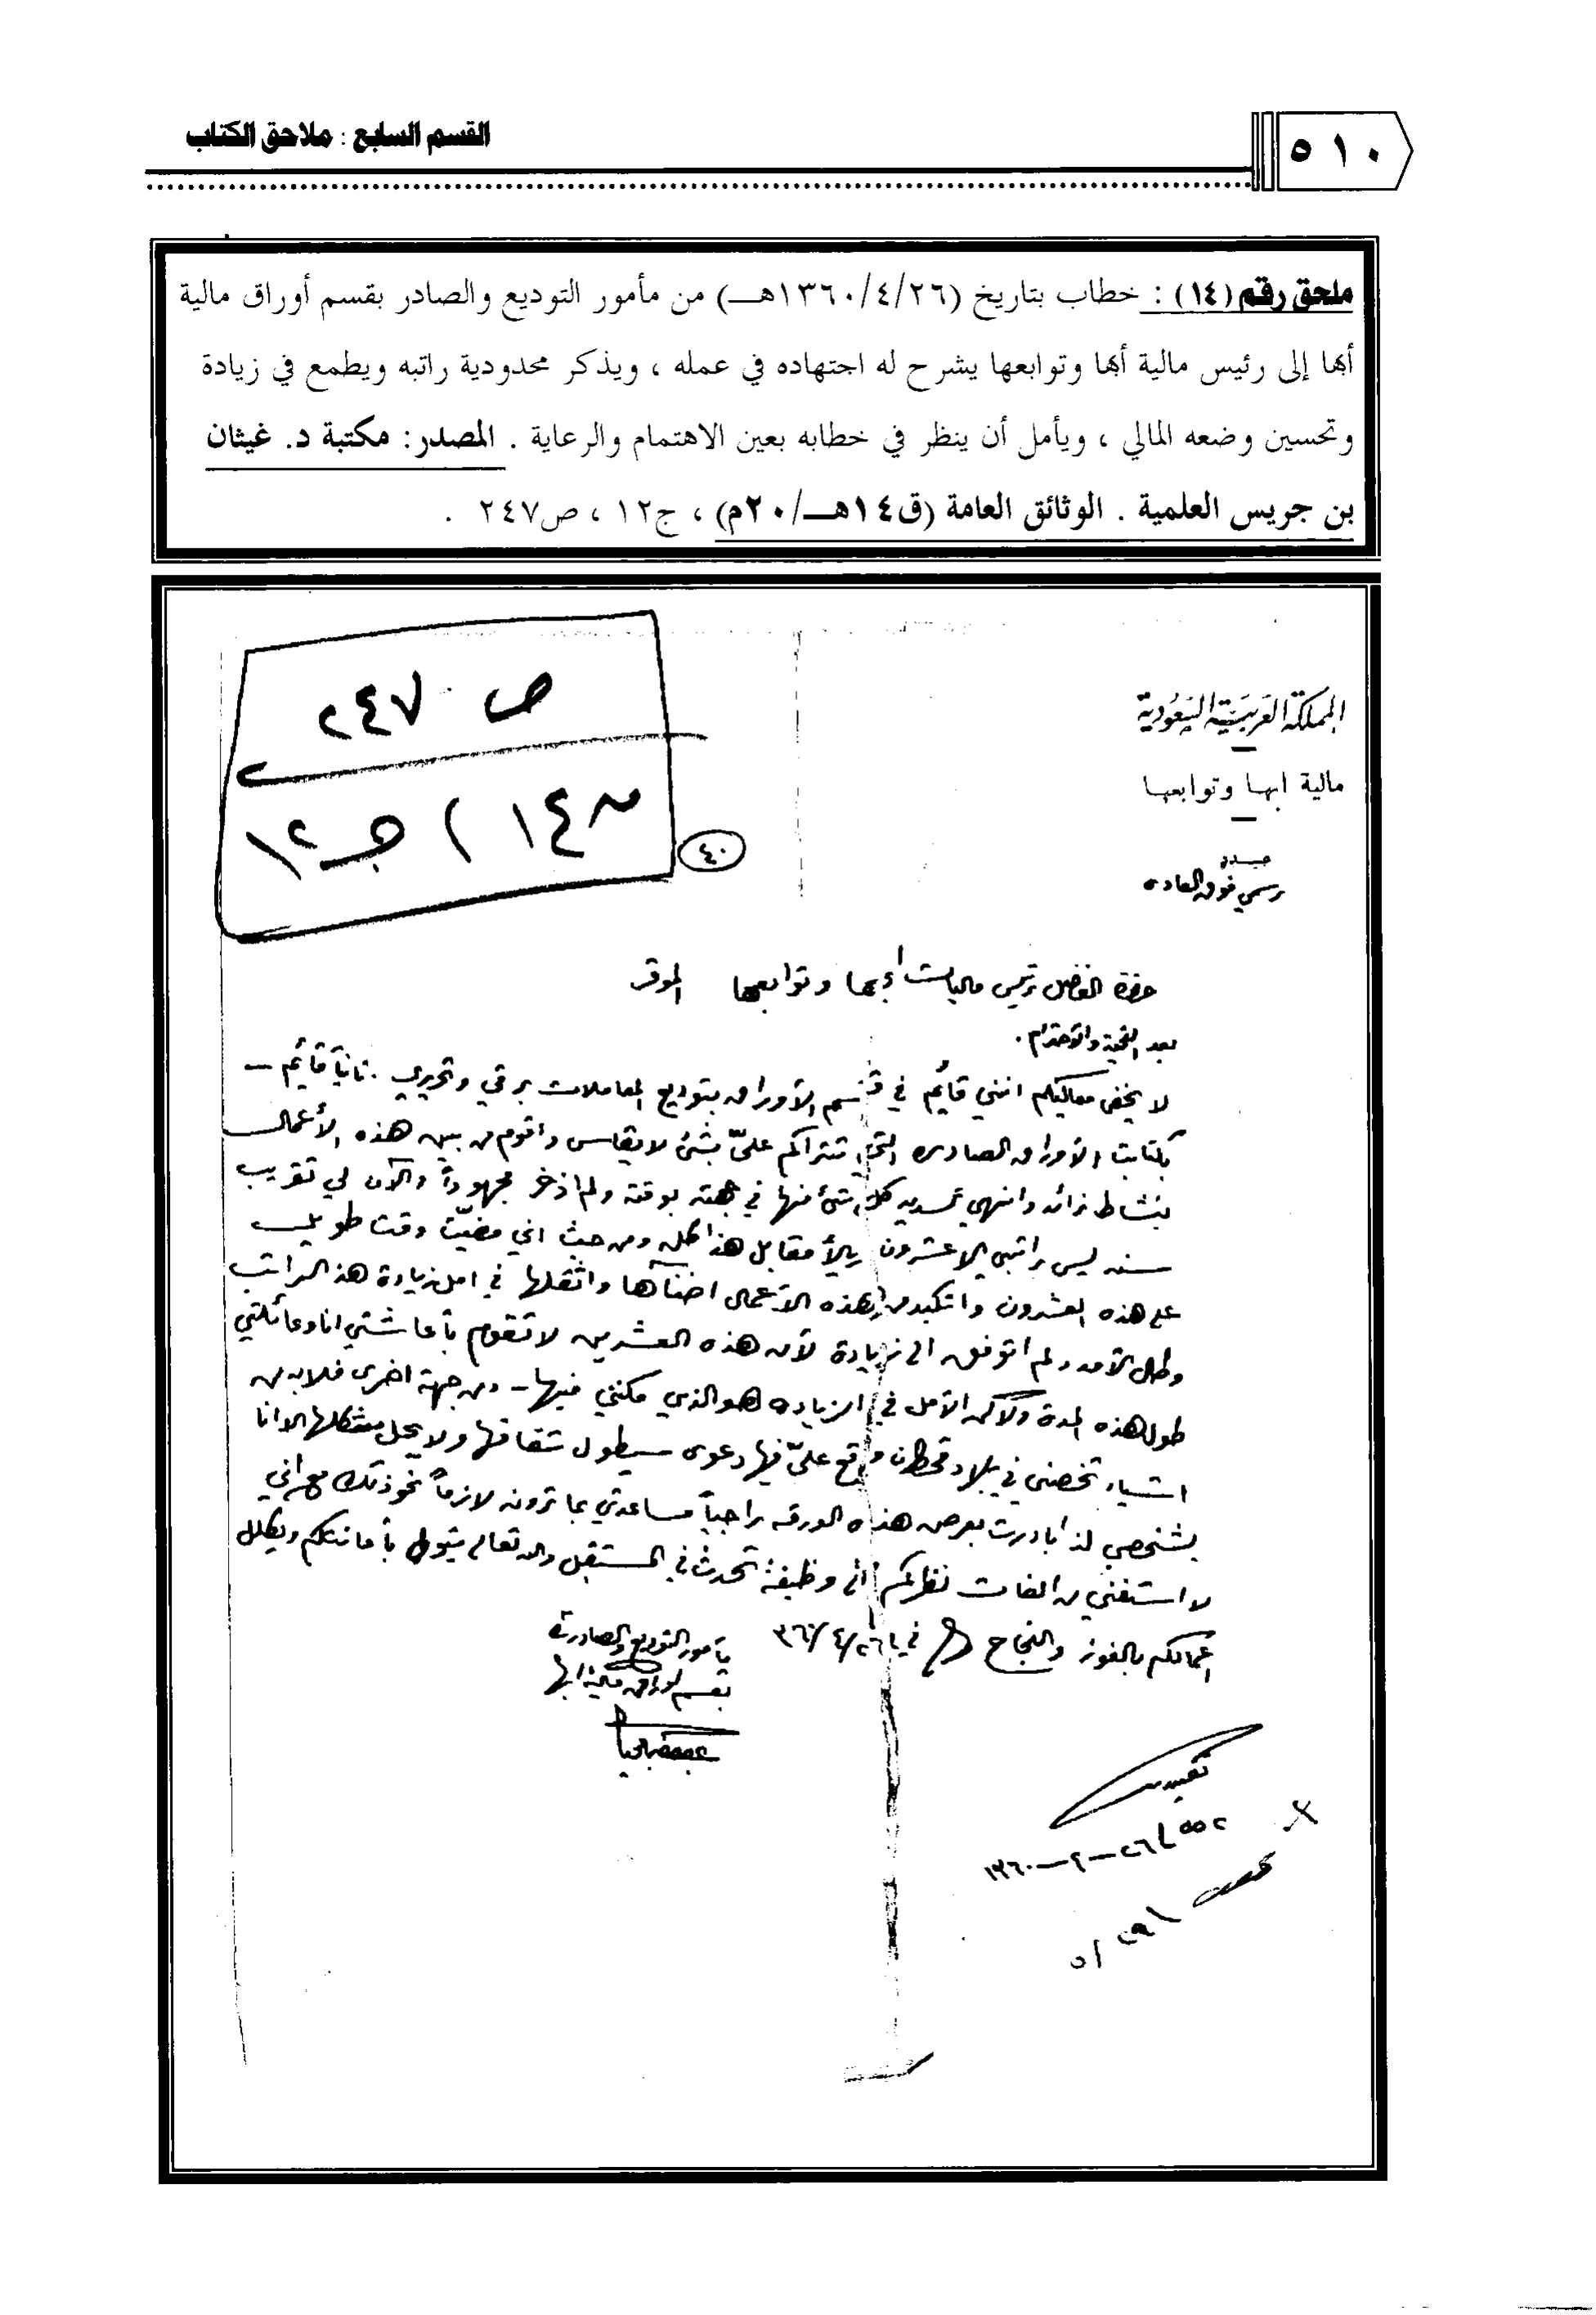 ٥١٠
القسم السابع : ملاحق الكتاب
ملحق رقم (١٤) : خطاب بتاريخ (١٣٦٠/٤/٢٦هـــ) من مأمور التوديع والصادر بقسم أوراق مالية
أبها إلى رئيس مالية أبها وتوابعها يشرح له اجتهاده في عمله ، ويذكر محدودية راتبه ويطمع في زيادة
وتحسين وضعه المالي ، ويأمل أن ينظر في خطابه بعين الاهتمام والرعاية . المصدر: مكتبة د. غيثان
بن جريس العلمية . الوثائق العامة (ق١٤هـــ/٢٠م) ، ج١٢ ، ص٢٤٧ .
ص ٢٤٧
١٤ / جـ ١٢
٤٠
المملكة العربية السعودية
مالية ابها وتوابعها
رسمي فوق العاده
حضرة الفاضل رئيس ماليات أبها وتوابعها الموقر
بعد التحية والاحترام .
لا يخفى معاليكم انني قائم في قسم الأوراق بتوديع المعاملات برقي وتحريري . ثانياً قائم –
بكتابت الأوراق الصادره التي تتراكم عليّ بشئ لا يقاس واقوم من بين هذه الأعمال
بنشاط زائد وانهي تسديد كل شئ منها في جهته بوقته ولم اذخر مجهوداً والآن لي تقريب
سنه ليس راتبي الا عشرون ريالاً مقابل هذا كله ومن حيث اني مضيّت وقت طويل
على هذه العشرون واتكبد من هذه الأعمال اضناها واثقلها في امل زيادة هذ الراتب
وطال الأمد ولم اتوفق الى زيادة لأن هذه العشرين لا تقوم بأعاشتي انا وعائلتي
طول هذه المدة ولاكن الأمل في الزياده هو الذي مكنني فيها – ومن جهة اخرى فلابد من
اشياء تخصني في بلاد قحطان واقع عليّ فيها دعوى سيطول شقاقها ولا يحل مشكلها الا انا
بشخصي لذا بادرت بعرض هذه الورقه راجياً مساعدتي بما ترونه لازماً نحو ذلك مع اني
لا استغني من الفات نظركم الى وظيفة تحدث في المستقبل والله تعالى يتولى بأعانتكم ويكلل
اعمالكم بالفوز والنجاح في ٣٦٠/٤/٢٦
مأمور التوديع والصادرة
بقسم اوراق مالية ابها
تقييد
٥٥٢
٢٦–٤–١٣٦٠